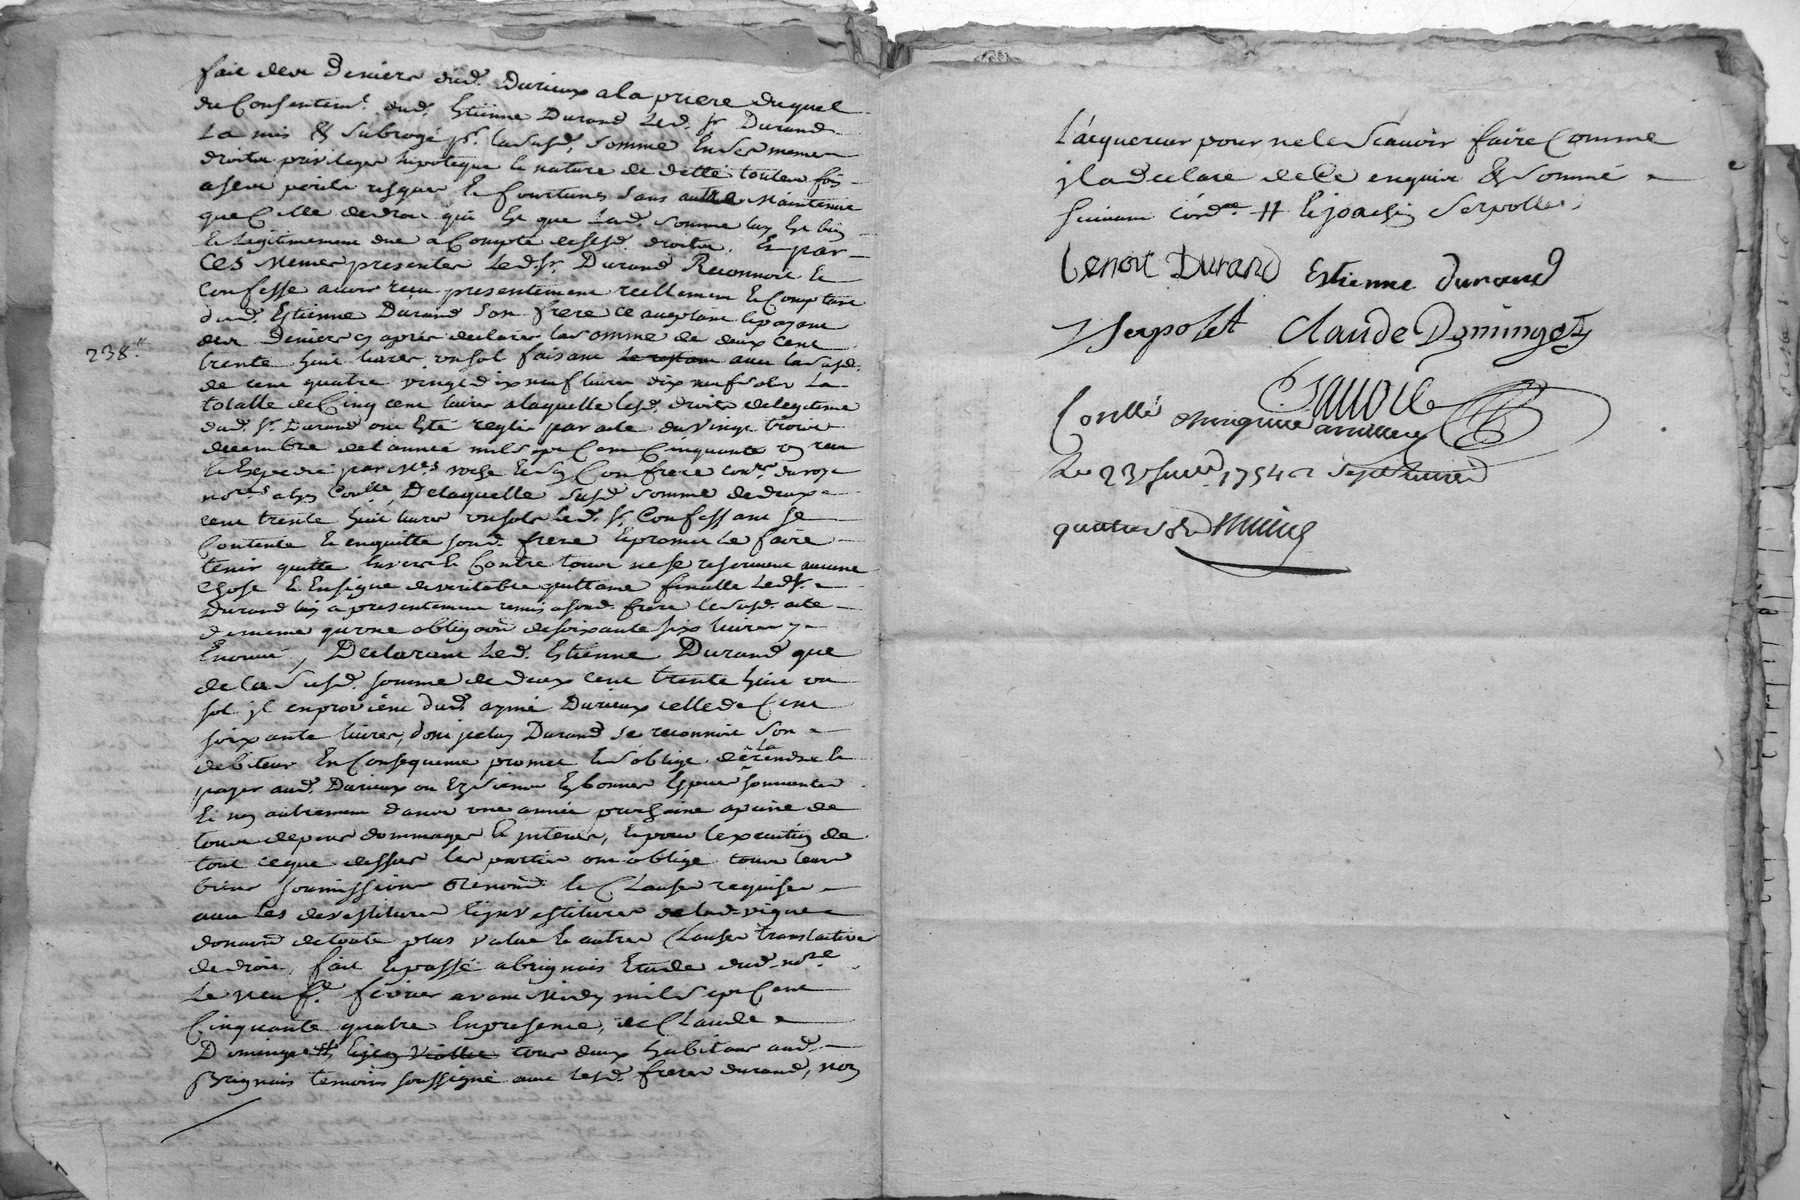 fait des deniers dud. Durieux a la priere duquel
du Consentemt. dud. Estienne Durand Led. Sr. Durand
La mis & subrogé pr. la susd. somme En ses memes
droits privileges hipoteque & nature de dette toutes fois
a ses perils risques & fourtunes sans autre Maintenue
que Celle de droit qui Est que lad. somme luy Est bien
& legitimement due a Compte desesd. droits. Et par
Ces Memes presentes Led. Sr. Durand Reconnoit &
Confesse avoir reçu presentement reellement & Comptant
dud. Estienne Durand son frere ce acceptant & payant
des deniers cy après declarés la somme de deux Cent
238.tt
trente huit livres un sol faisant le restant avec la susd.
de cent quatre vingt dix neuf livres dix neuf sols La
totalle de Cinq cent livres a laquelle lesd. droits de legitime
dud. Sr. Durand ont Eté reglés par acte du vingt trois
decembre de l'année mil sept Cent Cinquante un reçu
& Expedié par Mes roche & Son Confrere conrs. du roy
nores a lyon Conllé, De laquelle susd. somme de deux
cent trente huit livres un sols led. Sr. Confessant se
Contente & en quitte sond. frere & promet le faire
tenir quitte Envers & Contre tous ne se reservant aucune
chose & En signe de veritable quittance finalle Led. Sr.
Durand luy a presentement remis a sond. frere le susd. acte
de meme qu'une obligaon de soixante six livres y
Enoncé, Declarant Led. Estienne Durand que
de la susd. somme de deux cent trente huit un
sol il en provient dud. aymé Durieux celle de Cent
soixante livres, dont iceluy Durand se reconnoit son
debiteur En Consequence promet & s'oblige de la rendre &
payer aud. Durieux ou Ez siens En bonnes Especes sonnantes
Et non autrement dans une année prochaine a peine de
tous depens dommages & interets, & pour l'execution de
tout ce que dessus les parties ont obligé tous leurs
biens soumissions renond. & Clauses requises
avec les devestitures & investitures de lad. vigne
donaond de toute plus value & autres Clauses translatives
de droit, fait & passé a brignais Etude dud. nore.
Le neuf. fevrier avant Midy mil sept Cent
Cinquante quatre En presence, de Claude
Dominget, tt & jean Viollet tous deux habitans aud.
Brignais temoins soussignés avec lesd. freres durand, non
L'acquereur pour ne le sçavoir faire Comme
il a declaré de Ce enquis & sommé
suivant l'ordce. tt & joachin Serpollet.
Benoit Durand Estienne durand
J Serpolet Claude Domingets
Sauvole
Conllé
Le 23 fevrier 1754 r sept livres
quatre sols